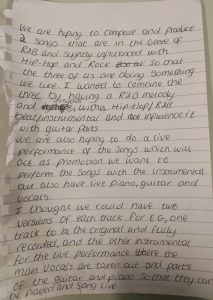 We are hoping to compose and produce
2 Songs that are in the Genre of
R&B and slightly influenced with
Hip-Hop and Rock so that
the three of us are doing something
we like. I wanted to combine the
three by having a R&B melody
and with a Hip-Hop/R&B
beat/instrumental and influence it
with guitar parts
We are also hoping to do a live
performance of the Songs which will
act as promotion we want to
perform the songs with the instrumental
but also have live piano, guitar and
vocals.
I thought we could have two
versions of each track for EG, one
track to be the original and fully
recorded, and the other instrumental
for the live performance where the
main vocals are taken out and parts
of the guitar and piano so that they can
be played and sang live.